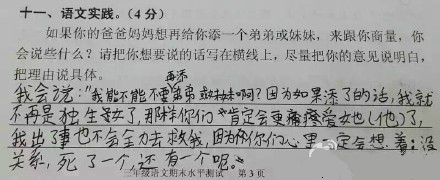 十一、语文实践。(4分)
如果你的爸爸妈妈想再给你添一个弟弟或妹妹，来跟你商量，你
会说些什么？请把你想要说的话写在横线上，尽量把你的意见说明白，
把理由说具体。
再添
我会说："我能不能不要弟弟或妹妹啊？因为如果添了的话，我就
不再是独生女了，那样你们肯定会更疼爱她(他)了，
我出了事也不会全力去救我，因为你们心里一定会想着：没
关系，死了一个，还有一个呢。"
三年级语文期末水平测试 第3页